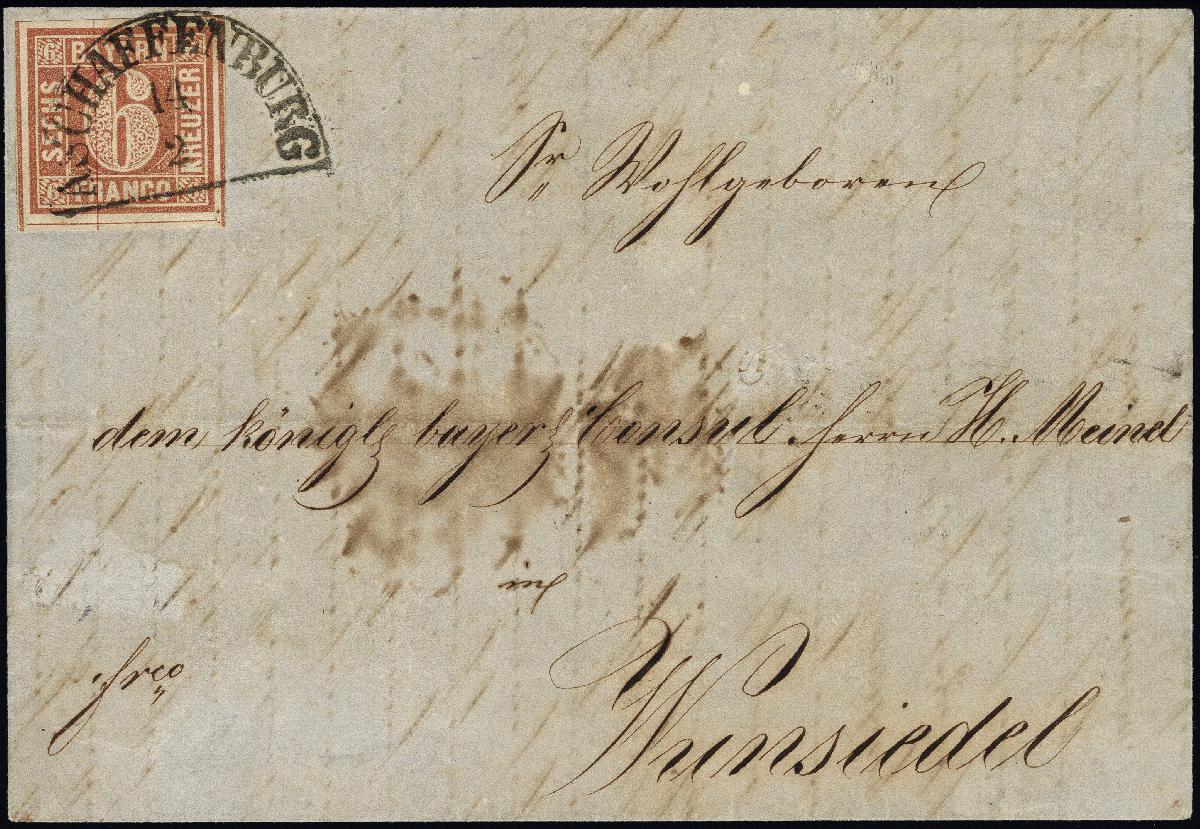 BAYERN
SECHS
6
KREUZER
FRANCO
ASCHAFFENBURG
14
2
Sr Wohlgeboren
dem königl bayer Consul Herrn H. Meinel
in
frco
Wunsiedel